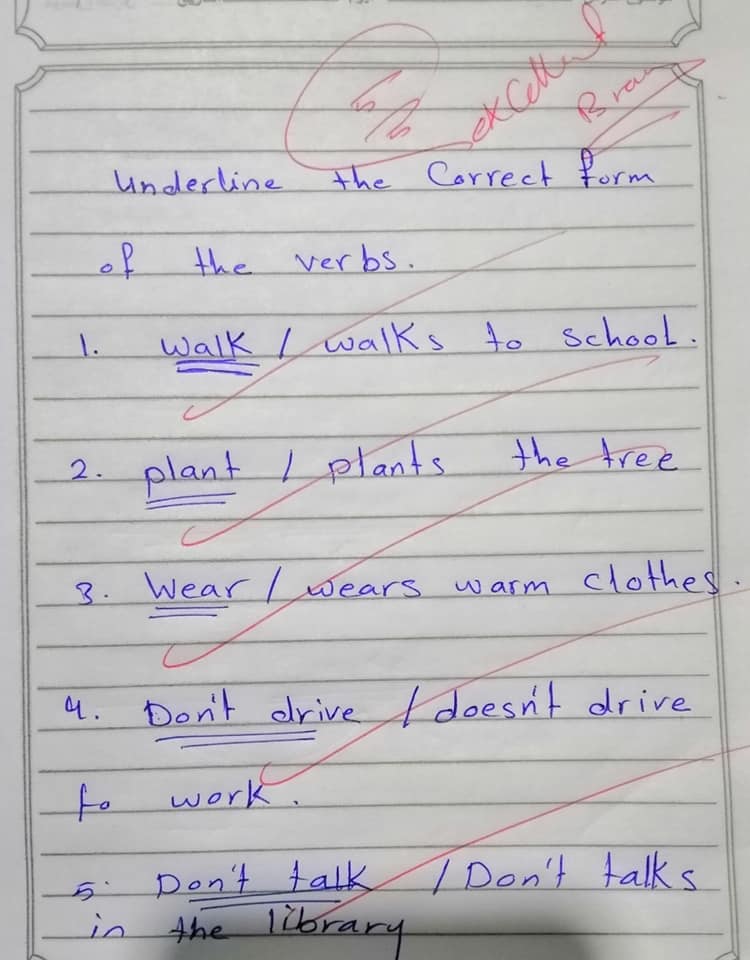 5/5 excellent
Underline the Correct form
of the verbs.
1. walk / walks to school.
2. plant / plants the tree
3. Wear / wears warm clothes.
4. Don't drive / doesn't drive
to work.
5. Don't talk / Don't talks
in the library